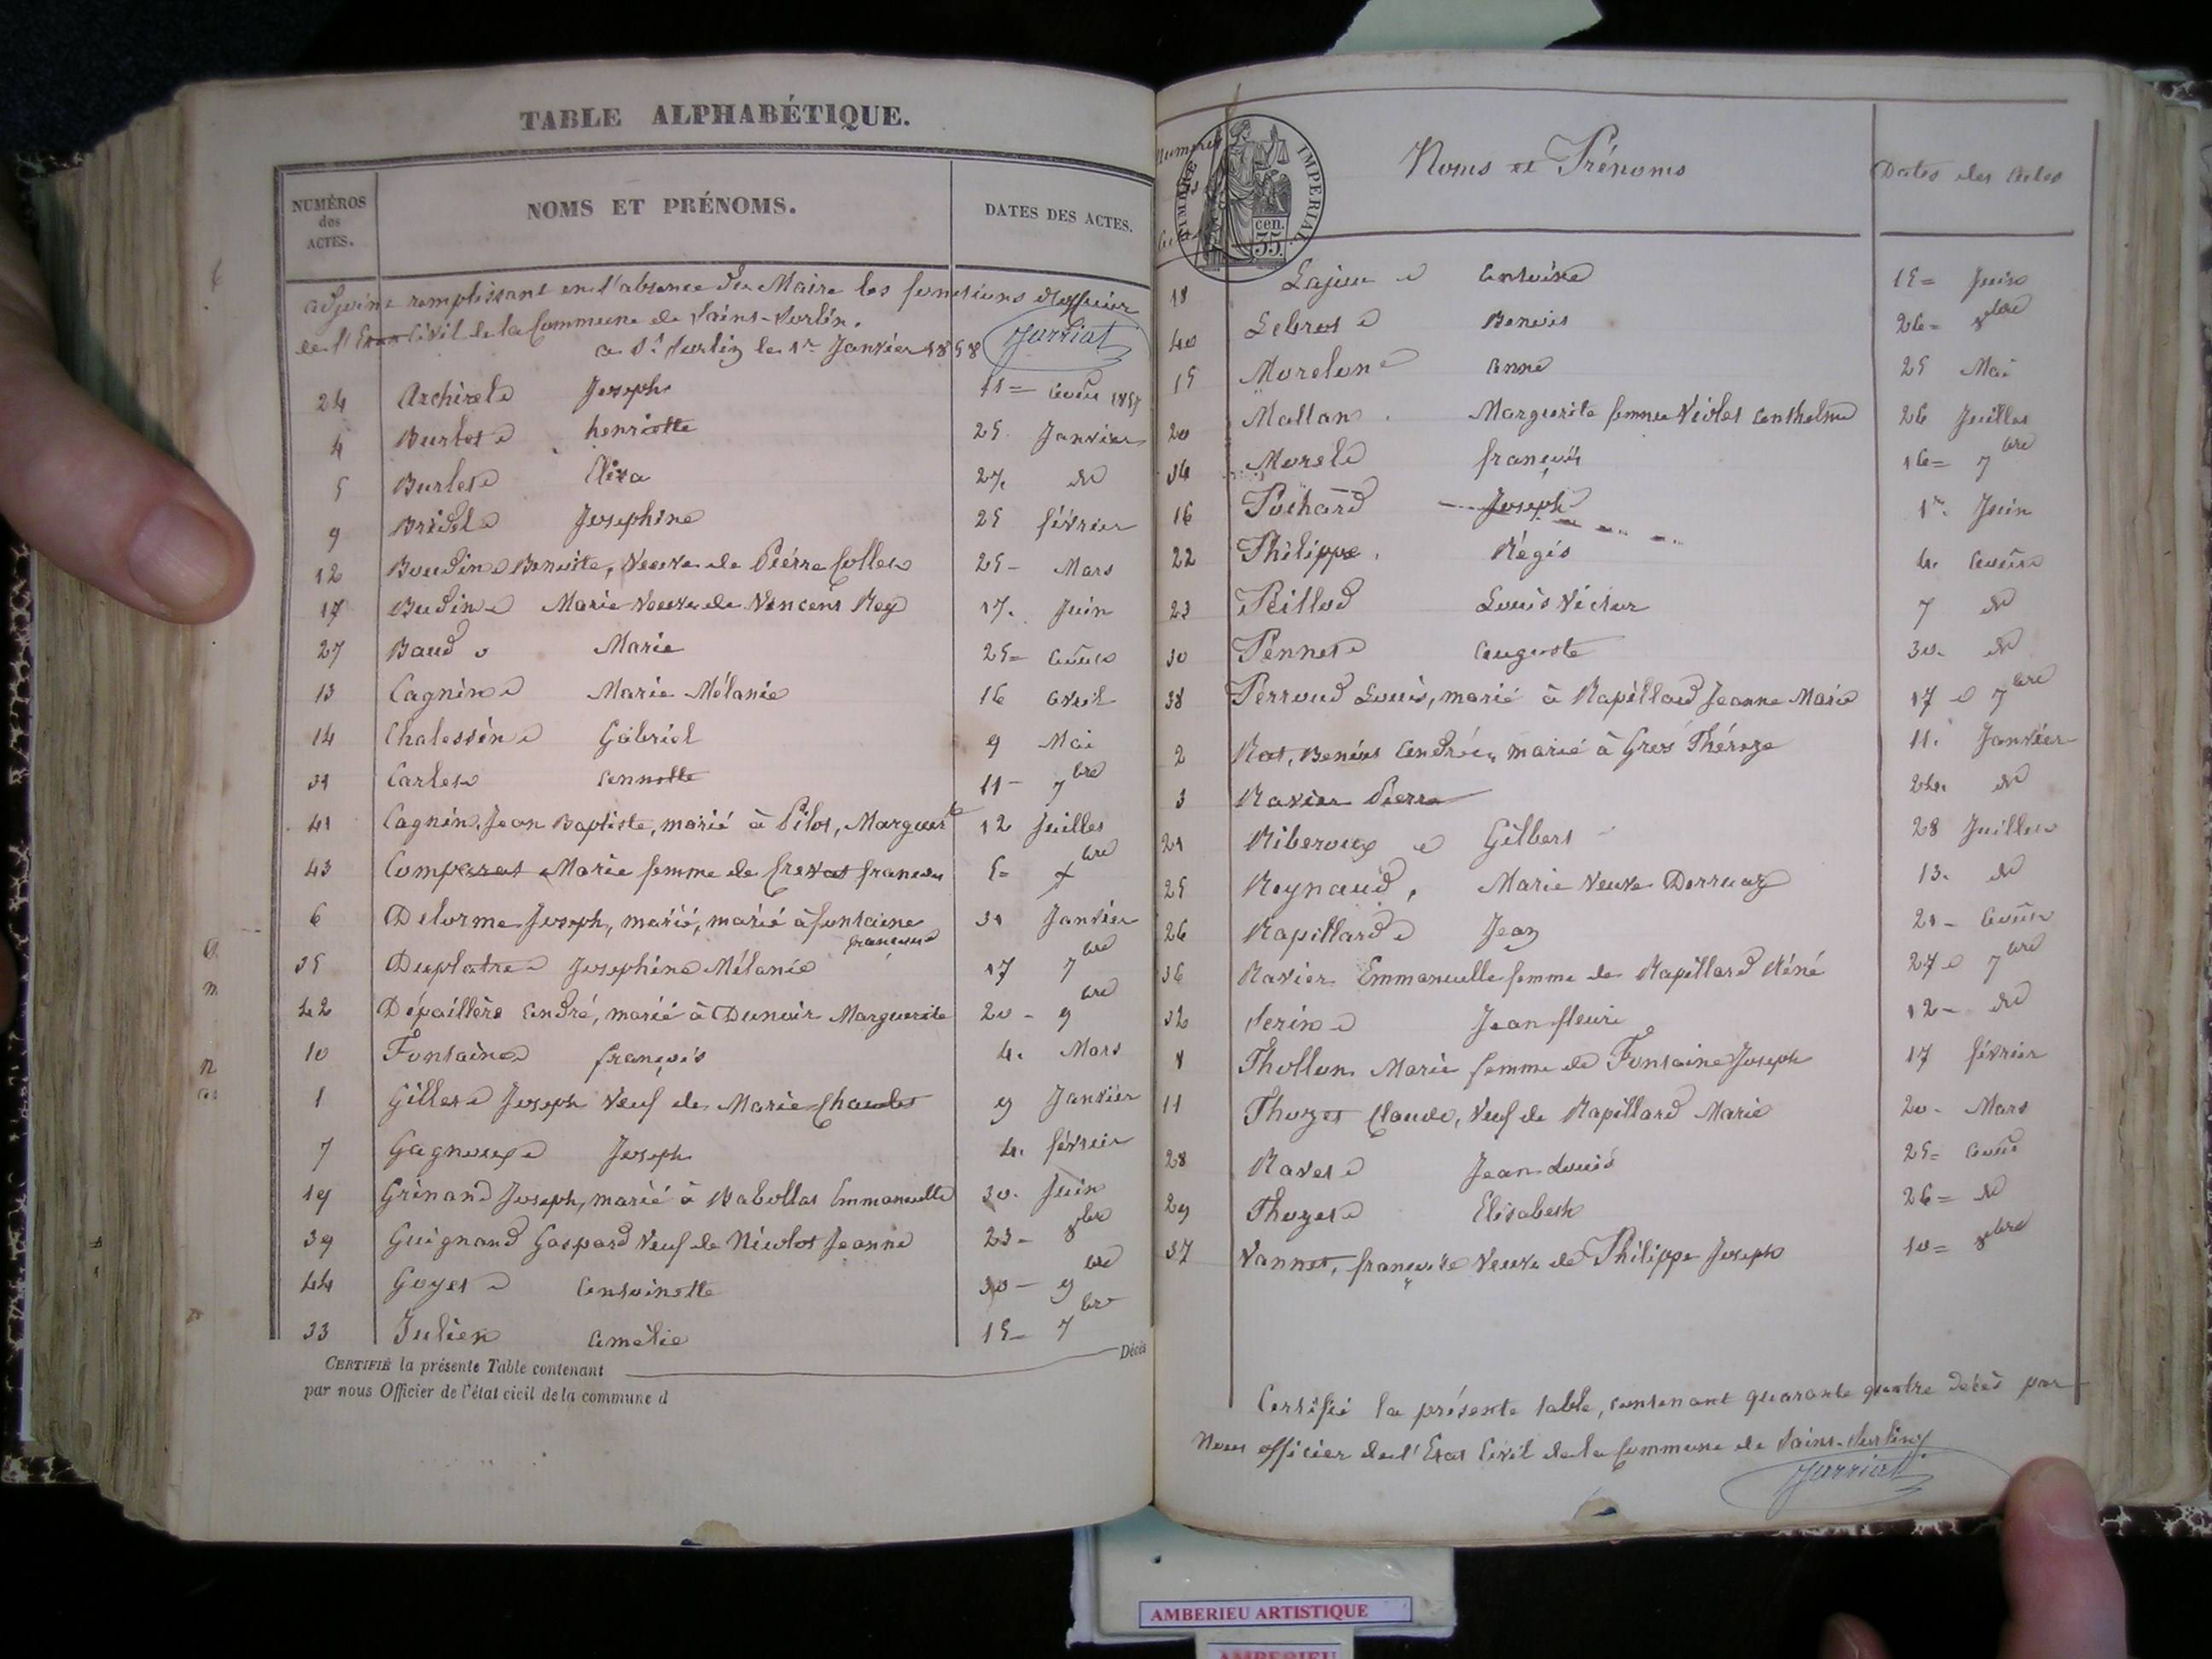 TABLE ALPHABÉTIQUE.
NUMÉROS des ACTES.
NOMS ET PRÉNOMS.
DATES DES ACTES.
adjoint remplissant en l'absence du Maire les fonctions d'officier
de l'Etat Civil de la Commune de Saint-Sorlin.
a St Sorlin le 1er Janvier 1858 Jarriat
24 Joseph 11= Août 1857
4 Burlet henriette 25 Janvier
5 Burlet Eliza 27. do
9 Bridel Josephine 25 février
12 Boudin Benoite, Veuve de Pierre Collet 25- Mars
17 Budin Marie Veuve de Vincent Rey 17. Juin
27 Baud Marie 25= Août
13 Cagnin Marie Mélanie 16 avril
14 Chalessin Gabriel 9 Mai
31 Carlet Annette 11- 7bre
41 Cagnin, Jean Baptiste, marié à Pilot, Marguerite 12 Juillet
43 Comparat Marie femme de 5= Xbre
6 Delorme Joseph, marié, marié à fontaine françoise 31 Janvier
35 Duplatre Josephine Mélanie 17 7bre
42 Dépaillère André, marié à Dunoir Marguerite 20- 9bre
10 Fontaine françois 4. Mars
1 Gillet Joseph Veuf de Marie 9 Janvier
7 Gagneux Joseph 4. février
19 Grinand Joseph, marié à Babollat Emmanuelle 30. Juin
39 Guignand Gaspard Veuf de Nicolot Jeanne 23- 8bre
44 Goyet Antoinette 30- 9bre
33 Julien Amélie 15- 7bre
CERTIFIÉ la présente Table contenant Décès
par nous Officier de l'état civil de la commune d
Numéros
TIMBRE IMPERIAL
cen. 35.
Noms et Prénoms
Dates des Actes
18 Antoine 15= Juin
40 Lebrot Benoit 26= 8bre
15 Morelon Anne 25 Mai
20 Mallan Marguerite femme Violet Anthelme 26 Juillet
34 Morel françois 16= 7bre
16 Pochard Joseph 1er Juin
22 Philippe Régis 4. Août
23 Peillod Louis Victor 7 do
30 Pennet Auguste 30. do
38 Perroud Louis, marié à Rapillard Jeanne Marie 17 7bre
2 Rat, Benoit André, marié à Gros Thérèze 11. Janvier
3 Ravier Pierre 24. do
21 Riberoux Gilbert 28 Juillet
25 Reynaud, Marie Veuve Derruaz 13. do
26 Rapillard Jean 21- Août
36 Ravier Emmanuelle femme de Rapillard Réné 27 7bre
32 Serin Jean fleuri 12- do
8 Thollon Marie femme de Fontaine Joseph 17 février
11 Thozet Claude, Veuf de Rapillard Marie 20- Mars
28 Ravet Jean Louis 25= Août
29 Thozet Elisabeth 26= do
37 Vannet, françoise Veuve de Philippe Joseph 10= 8bre
Certifié la présente table, contenant quarante quatre décès par
Nous officier de l'Etat Civil de la Commune de Saint-Sorlin
Jarriat
AMBERIEU ARTISTIQUE
AMBERIEU